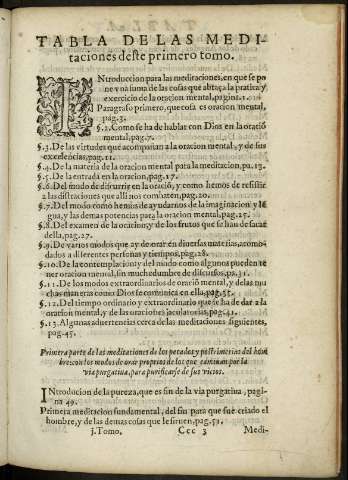 TABLA DE LAS MEDI-
taciones deste primero tomo.
INtroduccion para las meditaciones, en que se po
ne vna suma de las cosas que abraça la pratica y
exercicio de la oracion mental, pagina.1.
Paragrafo primero, que cosa es oracion mental,
pag.3.
§.2. Como se ha de hablar con Dios en la oració
mental, pag.7.
§.3. De las virtudes que acompañan a la oracion mental, y de sus
excelencias, pag.11.
§.4. De la materia de la oracion mental para la meditacion, pa.13.
§.5. De la entrada en la oracion, pag.17.
§.6. Del modo de discurrir en la oració, y como hemos de resistir
a las distractiones que alli nos combaten, pag.20.
§.7. Del modo como hemos de ayudarnos de la imaginacion y lé
gua, y las demas potencias para la oracion mental, pag.25.
§.8. Del examen de la oracion, y de los frutos que se han de sacar
della, pag.27.
§.9. De varios modos que ay de orar en diuersas materias, acomo-
dados a diferentes personas y tiempos, pag.28.
§.10. De la contemplacion, y del modo como algunos pueden te
ner oracion mental, sin muchedumbre de discursos, pa.31.
§.11. De los modos extraordinarios de oracion mental, y de las mu
chas maneras como Dios se comunica en ella, pag.35.
§.12. Del tiempo ordinario y extraordinario que se ha de dar a la
oracion mental, y de las oraciones jaculatorias, pag.41.
§.13. Algunas aduertencias cerca de las meditaciones siguientes,
pag.45.
Primera parte de las meditaciones de los pecados, y postrimerias del hom
bre: con los modos de orar proprios de los que caminan por la
via purgatiua, para purificarse de sus vicios.
INtroducion de la pureza, que es fin de la via purgatiua, pagi
na 49.
Primera meditacion fundamental, del fin para que fue criado el
hombre, y de las demas cosas que le siruen, pag.52.
j. Tomo. Ccc 3 Medi-